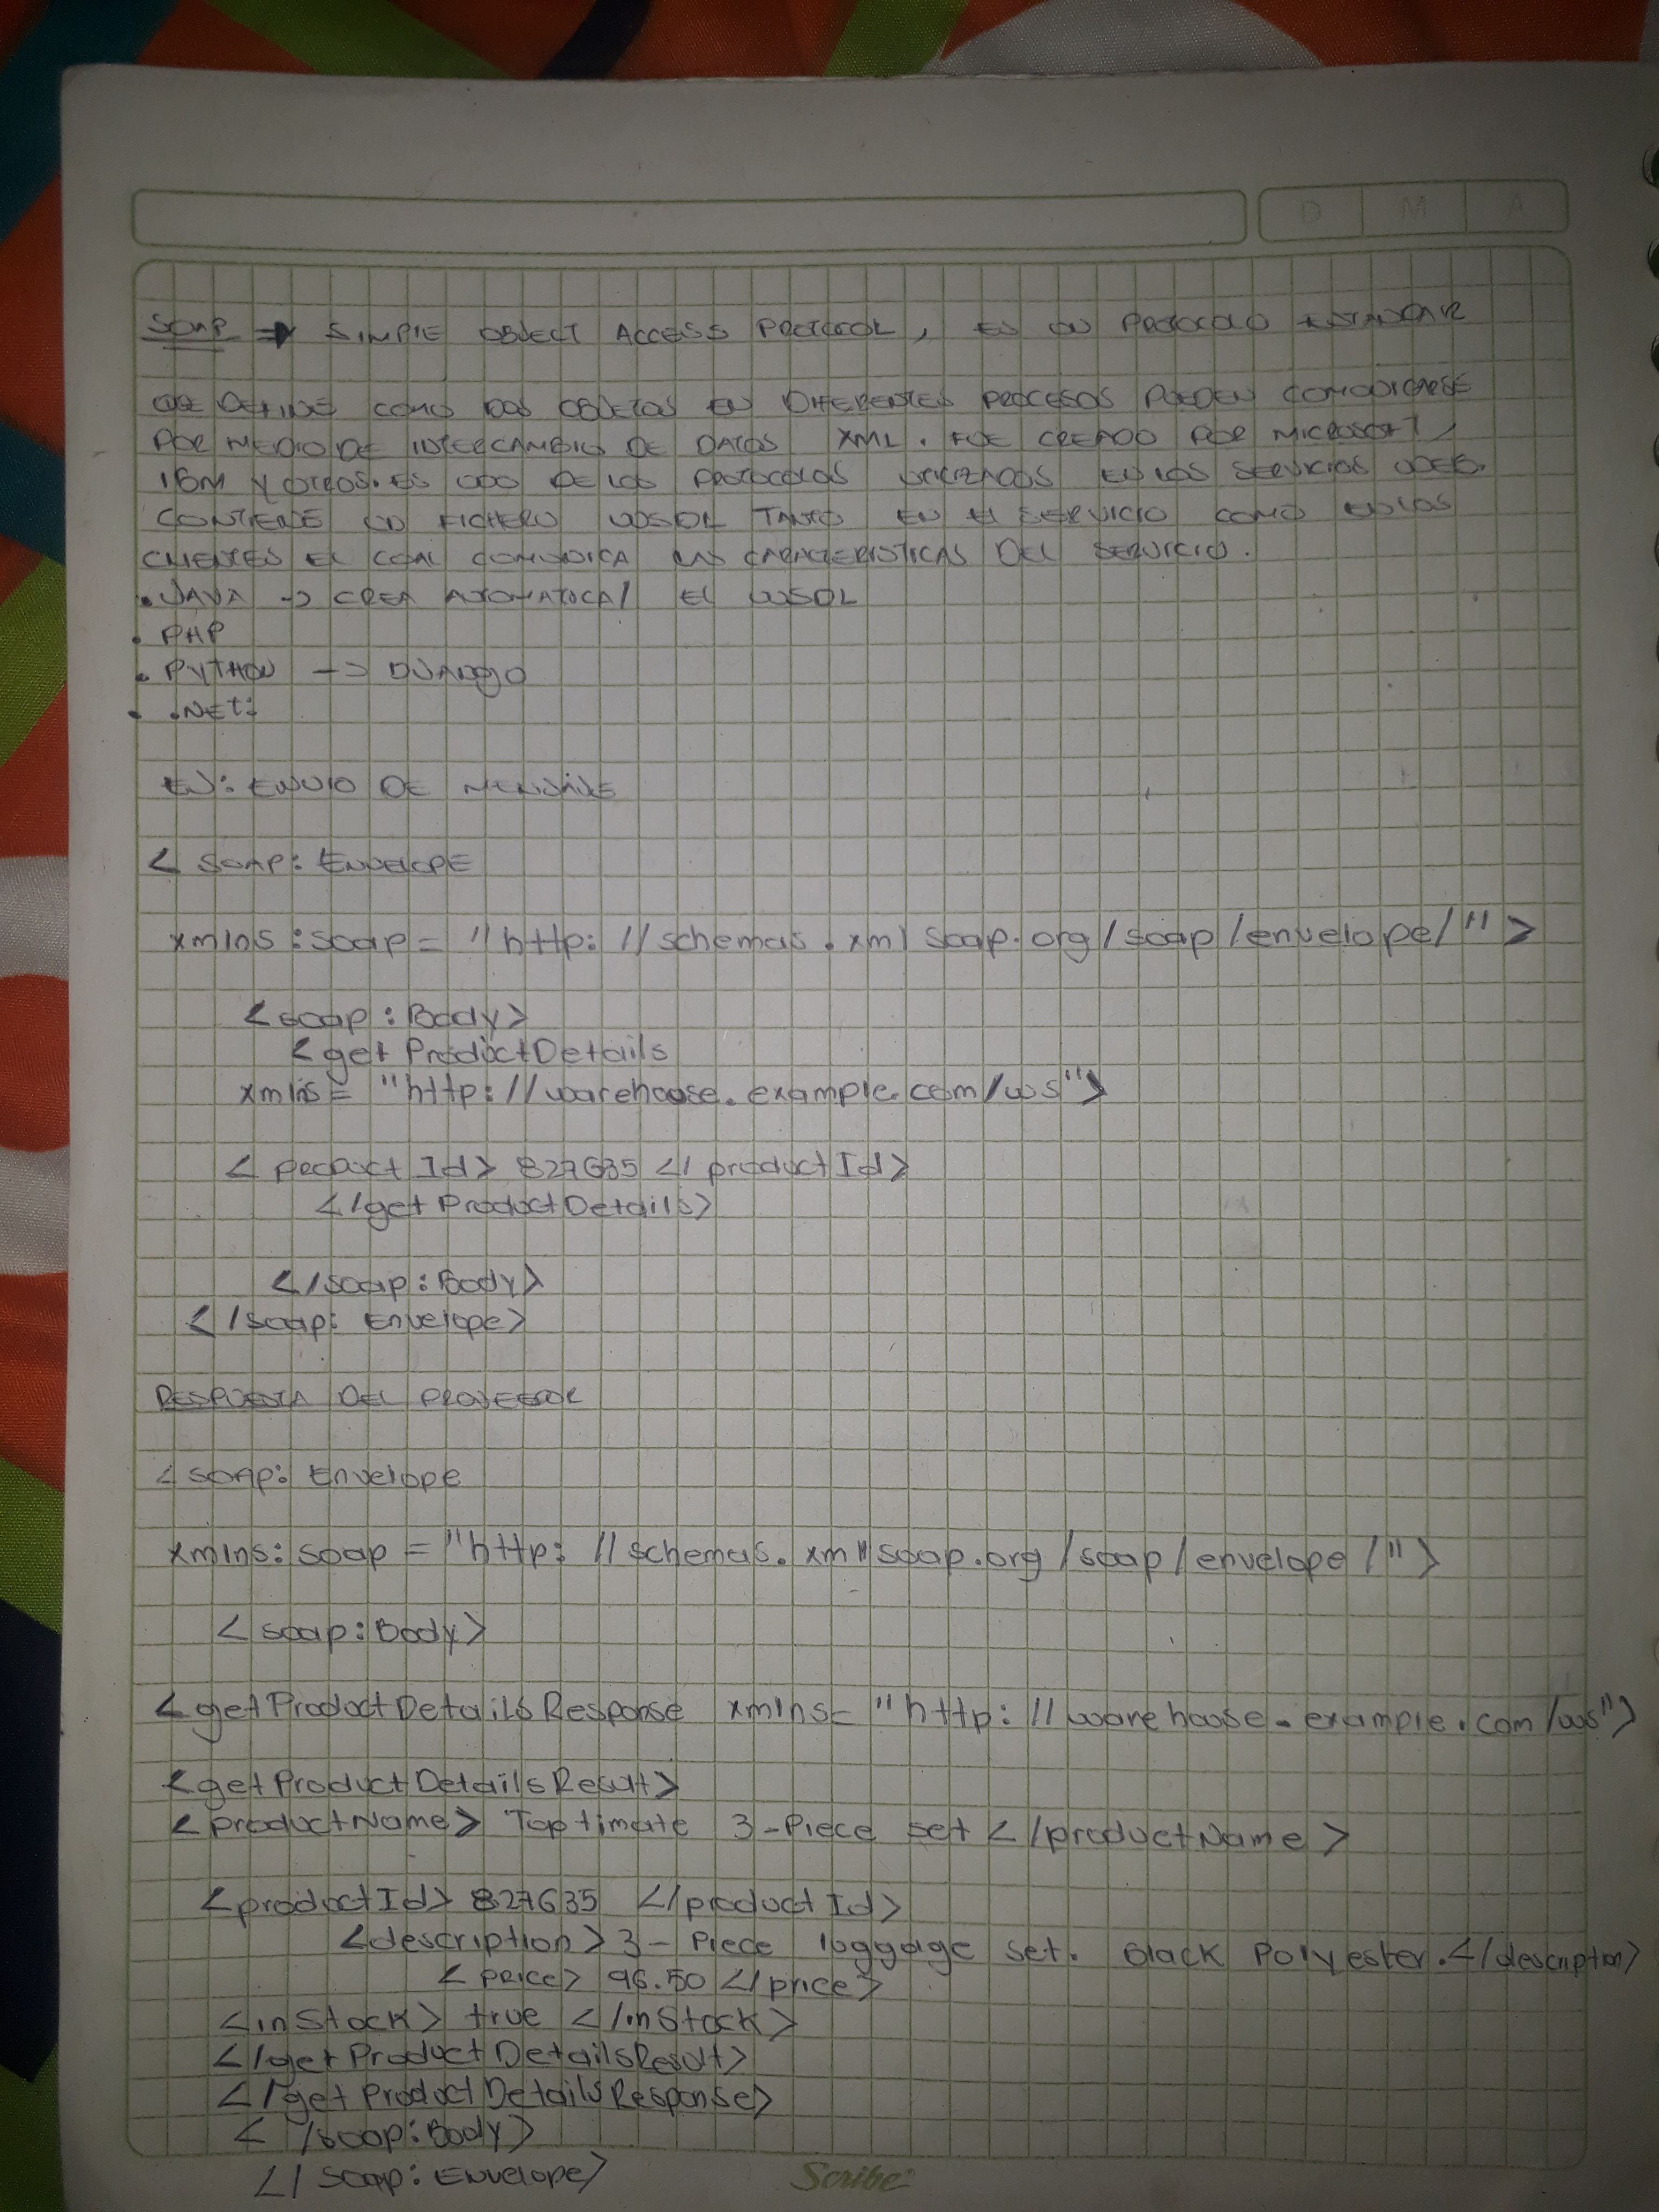 D M A
SOAP => SIMPLE OBJECT ACCESS PROTOCOL, ES UN PROTOCOLO ESTANDAR
QUE DEFINE COMO DOS OBJETOS EN DIFERENTES PROCESOS PUEDEN COMUNICARSE
POR MEDIO DE INTERCAMBIO DE DATOS XML. FUE CREADO POR MICROSOFT,
IBM Y OTROS. ES UNO DE LOS PROTOCOLOS UTILIZADOS EN LOS SERVICIOS WEB.
CONTIENE UN FICHERO WSDL TANTO EN EL SERVICIO COMO EN LOS
CLIENTES EL CUAL COMUNICA LAS CARACTERISTICAS DEL SERVICIO.
• JAVA -> CREA AUTOMATICA/ EL WSDL
• PHP
• PYTHON -> DJANGO
• .NET:
EJ: ENVIO DE MENSAJE
< SOAP: ENVELOPE
xmlns:soap= "http://schemas.xmlsoap.org/soap/envelope/">
<soap:Body>
<getProductDetails
xmlns= "http://warehouse.example.com/ws">
<productId> 827635 </productId>
</getProductDetails>
</soap:Body>
</soap: Envelope>
RESPUESTA DEL PROVEEDOR
<soap: Envelope
xmlns:soap = "http://schemas.xmlsoap.org/soap/envelope/">
<soap:Body>
<getProductDetailsResponse xmlns= "http://warehouse.example.com/ws">
<getProductDetailsResult>
<productName> Toptimate 3-Piece set </productName>
<productId> 827635 </productId>
<description> 3-Piece luggage set. Black Polyester.</description>
<price> 96.50 </price>
<inStock> true </inStock>
</getProductDetailsResult>
</getProductDetailsResponse>
</soap:Body>
</soap: Envelope>
Scribe